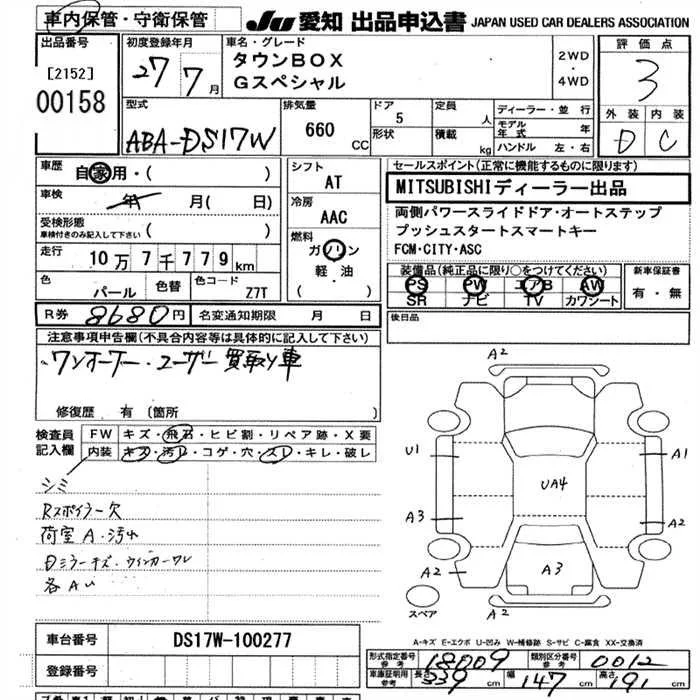 車内保管・守衛保管
JU 愛知 出品申込書 JAPAN USED CAR DEALERS ASSOCIATION
出品番号
[2152]
00158
初度登録年月
27 7 月
車名・グレード
タウンBOX
Gスペシャル
2WD
・
4WD
評価点
3
外装 内装
D C
型式
ABA-DS17W
排気量
660 CC
ドア 5
形状
定員 人
積載 kg
ディーラー・並行
モデル年式 年
ハンドル 左・右
車歴
自家用・( )
車検
年 月(日)
受検形態
車検付きのみ記入して下さい ( )
走行
10万7千779km
色
パール
色替
色コード
Z7T
シフト
AT
冷房
AAC
燃料
ガソリン
軽・油
( )
セールスポイント(正常に機能するものに限ります)
MITSUBISHIディーラー出品
両側パワースライドドア・オートステップ
プッシュスタートスマートキー
FCM・CITY・ASC
装備品(純正品に限り○をつけてください)
PS PW エアB AW
SR ナビ TV カワシート
新車保証書
有・無
R券 8680円
名変通知期限 月 日
後日品
注意事項申告欄(不具合内容等は具体的に記入して下さい)
ワンオーナー・ユーザー買取り車
修復歴 有 (箇所 )
検査員
記入欄
FW キズ・飛石・ヒビ割・リペア跡・X要
内装 キズ・汚レ・コゲ・穴・スレ・キレ・破レ
シミ
Rスポイラー欠
荷室A・汚れ
各A
A2
U1
A1
UA4
A3
A2
A3
A2
スペア
A2
A-キズ E-エクボ U-凹み W-補修跡 S-サビ C-腐食 XX-交換済
車台番号
DS17W-100277
登録番号
形式指定番号
参考
18009
類別区分番号
参考
0012
車庫証明用
参考
長さ 339 cm
幅 147 cm
高さ 191 cm